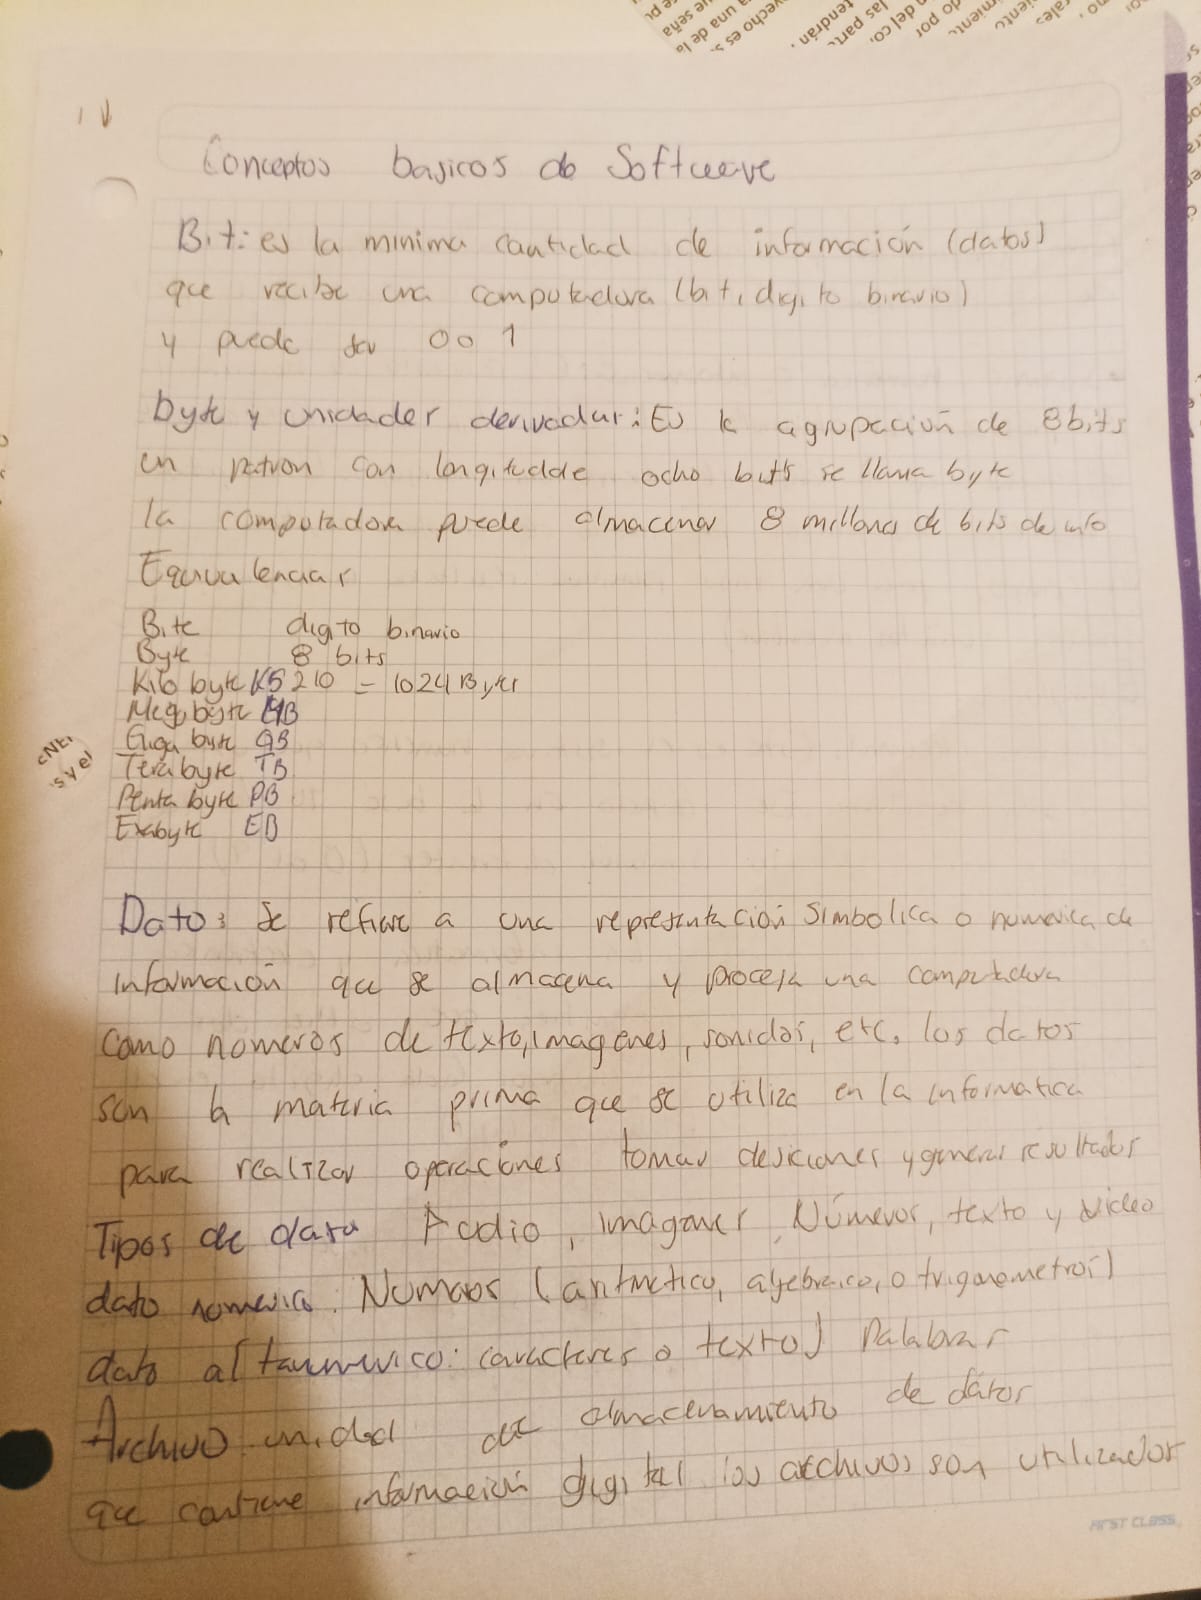 por
mo,
rales
iento
miento
do por
n del co.
las parte
tendrán.
vecho es s.
a una de la
ue seña
Conceptos basicos de Software
Bit: es la minima cantidad de información (datos)
que recibe una computadora (bit, digito binario)
y puede ser 0 o 1
byte y unidades derivadas: Es la agrupación de 8 bits
un patron con longitud de ocho bits se llama byte
la computadora puede almacenar 8 millones de bits de info
Equivalencias
Bite digito binario
Byte 8 bits
Kilo byte KB 210 = 1024 Bytes
Mega byte MB
Giga byte GB
Terabyte TB
Penta byte PB
Exabyte EB
Dato: Se refiere a una representación simbolica o numerica de
información que se almacena y procesa una computadora
como numeros de texto, imagenes, sonidos, etc. los datos
son la materia prima que se utiliza en la informatica
para realizar operaciones tomar desiciones y generar resultados
Tipos de data Audio, imagenes, Números, texto y video
dato numerico: Numeros (aritmetico, algebraico, o trigonometros)
dato alfanumerico: caracteres o texto) Palabras
Archivo unidad de almacenamiento de datos
que contiene información digital los archivos son utilizados
FIRST CLASS